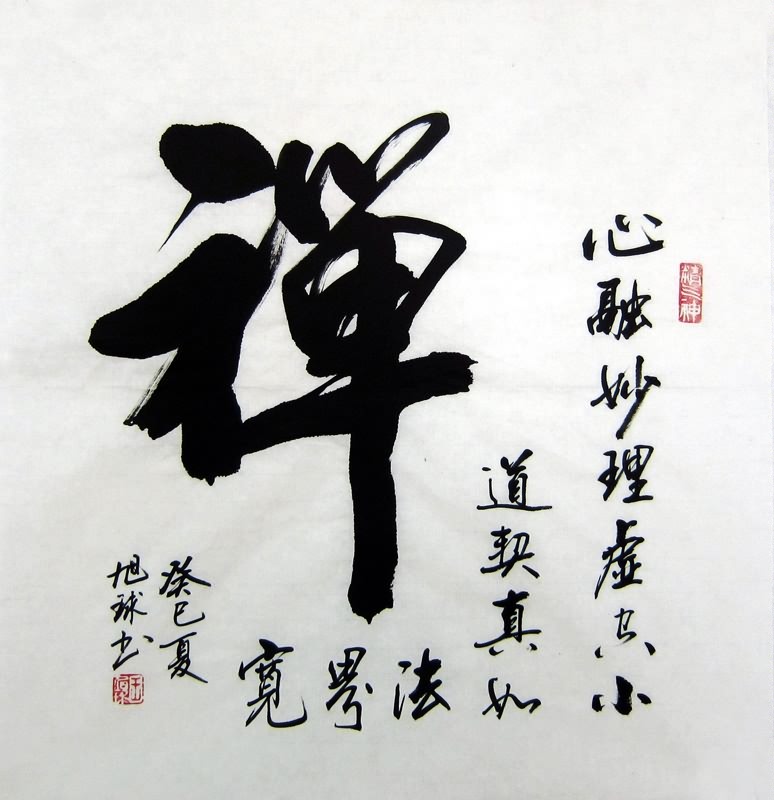 禪
心融妙理虛空小
道契真如
法
界
寬
癸巳夏
旭球书